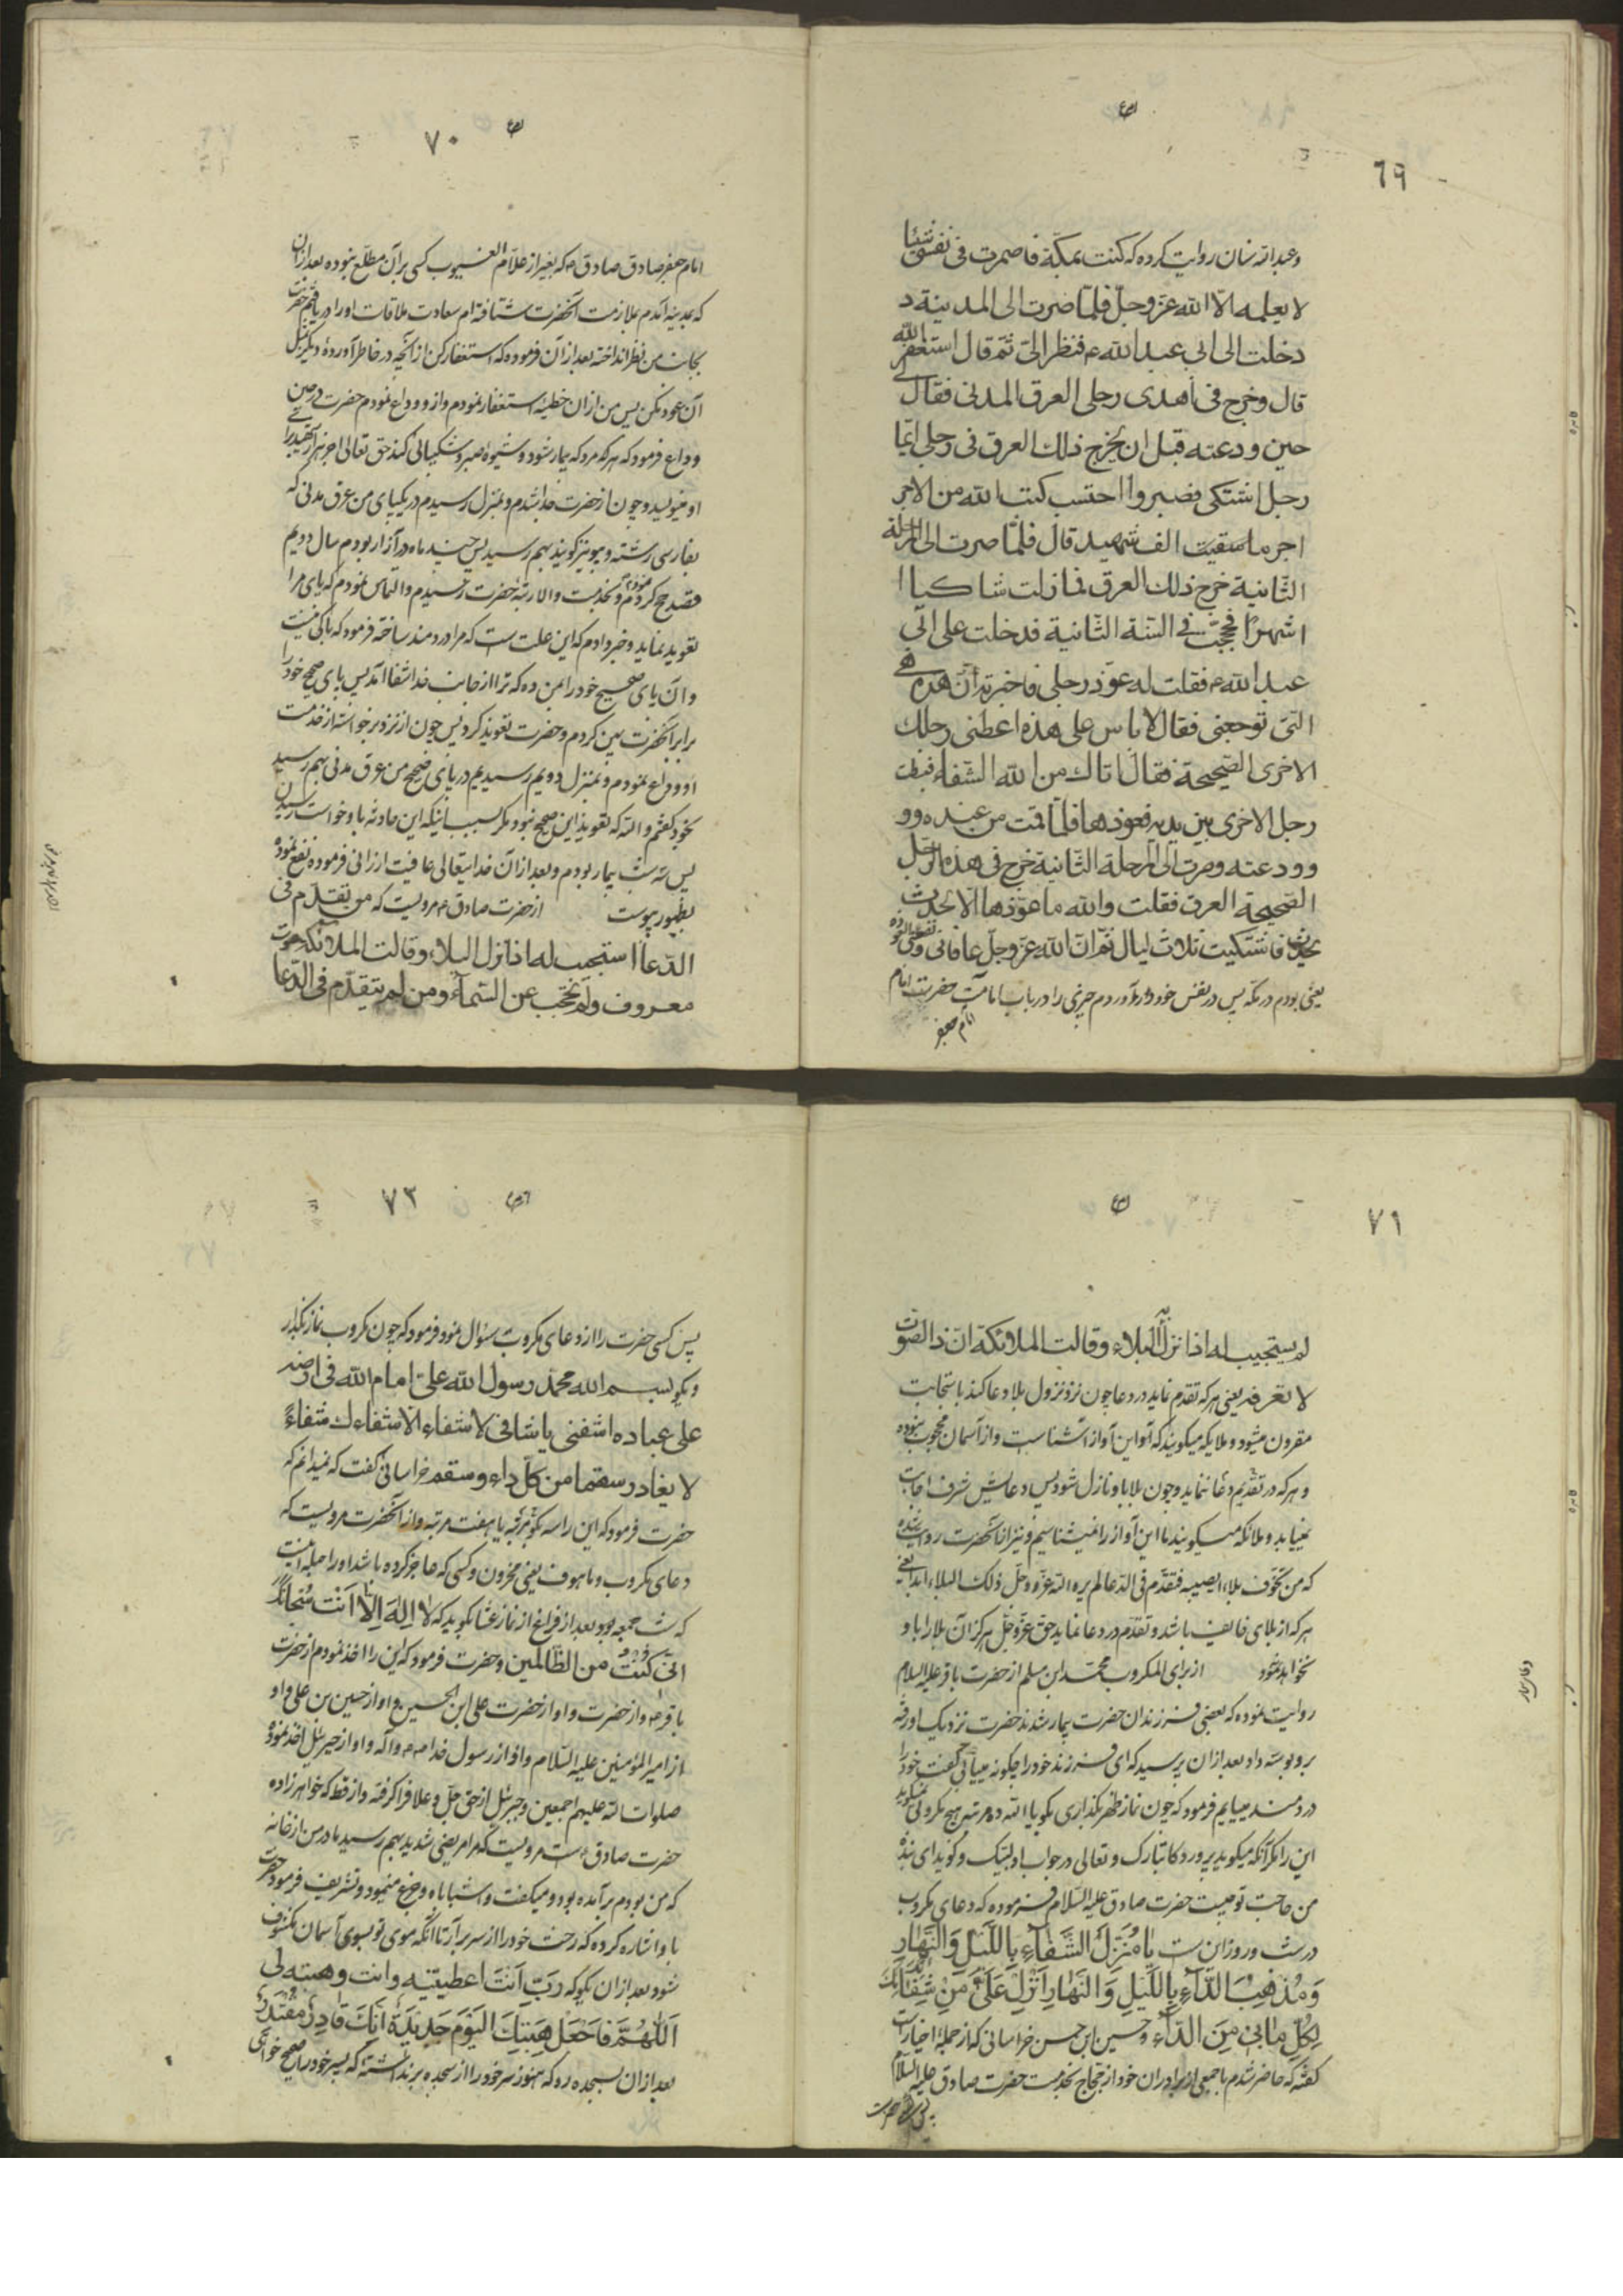 ٦٩
وعبدالله سنان روایت کرده که کنت بمکة فاضمرت فی نفسی شیئا
لا یعلمه الّا الله عزّ وجلّ فلمّا صرت الی المدینة د
دخلت الی ابی عبد الله ع فنظر الیّ ثمّ قال استغفر الله
قال وخرج فی احدی رجلی العرق المدنی فقال لی
حین ودعته قبل ان یخرج ذلك العرق فی رجلی ایّما
رجل اشتکی فصبر واحتسب کتب الله من الاجر
اجر الف شهید قال فلمّا صرت الی المرحلة
الثّانیة خرج ذلك العرق فما زلت شاکیا ا
اشهرًا فحججت فی السّنة الثّانیة فدخلت علی ابی
عبد الله ع فقلت له عوّذ رجلی فاخبرته انّ هذه
التی توجعنی فقال لا باس علی هذه اعطنی رجلك
الاخری الصّحیحة فقال اتاك من الله الشّفاء فبسطت
رجل الاخری بین یدیه فعوّذها فلمّا قمت من عنده وو
وودعته وصرت الی المرحلة الثّانیة خرج فی هذه الرّجل
الصّحیحة العرق فقلت والله ما عوّذها الّا لحدث
یحدث فاشتکیت ثلاث لیال ثمّ انّ الله عزّ وجلّ عافانی
یعنی بودم در مکّه پس در نفس خود درآوردم چیزی را در باب امامت حضرت امام
امام جعفر
٧٠
امام جعفر صادق صادق ع که بغیر از علّام الغیوب کسی بر آن مطلع نبوده بعد از آن
که بمدینه آمدم بملازمت آنحضرت شتافته‌ام سعادت ملاقات او را دریافتم حضرت
بجانب من نظر انداخته بعد از آن فرموده که استغفار کن از آنچه در خاطر آورده‌ٔ دیگر بمثل
آن عود مکن پس من از آن خطیئه استغفار نمودم و از و وداع نمودم حضرت در حین
وداع فرمود که هر که مرد که بیمار شود و شیوهٔ صبر و شکیبائی کند حق تعالی اجر هزار شهید برا
او مینویسد و چون از حضرت جدا شدم و بمنزل رسیدم در یکپای من عرق مدنی که
بفارسی رشته و پیو نیز گویند بهم رسید پس چند ماه در آزار بودم سال دویم
قصد حج کردم و بخدمت والا رتبهٔ حضرت رسیدم و التماس نمودم که پای مرا
تعویذ نماید و خبر دادم که این علت است که مرا دردمند ساخته فرمود که باکی نیست
و آن پای صحیح خود را بمن ده که ترا از جانب خدا شفا آمد پس پای صحیح خود را
برابر آنحضرت پهن کردم و حضرت تعویذ کرد پس چون از نزد برخواسته از خدمت
او وداع نمودم و بمنزل دویم رسیدیم در پای صحیح من عرق مدنی بهم رسید
بخود گفتم والله که تعویذ این صحیح نبود مگر بسبب اینکه این حادثه باو خواست رسیدن
پس سه شب بیمار بودم و بعد از آن خدایتعالی عافیت ارزانی فرموده نفع نموده
بظهور پیوست از حضرت صادق ع مرویست که من تقدّم فی
الدّعاء استجیب له اذا نزل البلاء وقالت الملائکة صوت
معروف ولم یحجب عن السّمآء ومن لم یتقدّم فی الدّعا
٧١
لم یستجیب له اذا نزل به البلاء وقالت الملائکة انّ ذا الصّوت
لا نعرفه یعنی هر که تقدم نماید در دعا چون نزد نزول بلا دعا کند باستجابت
مقرون میشود و ملایکه میگویند که این آواز آشناست و از آسمان محجوب نبوده
و هر که در تقدیم دعا ننماید و چون بلا باو نازل شود پس دعایش شرف اجابت
نیابد و ملائکه میگویند ما این آواز را نمیشناسیم و نیز از آنحضرت روایت شده
که من تخوّف بلاء یصیبه فتقدّم فی الدّعا لم یره الله عزّ وجلّ ذلك البلاء ابدا یعنی
هر که از بلای خائف باشد و تقدّم در دعا نماید حق عزّ وجلّ هرگز آن بلا را باو
نخواهد نمود از برای المکروب محمّد ابن مسلم از حضرت باقر علیه السلام
روایت نموده که بعضی فرزندان حضرت بیمار شدند حضرت نزدیک او رفته
برو بوسه داد بعد از آن پرسید که ای فرزند خود را چگونه مییابی گفت خود را
دردمند مییابم فرمود که چون نماز ظهر بگذاری بگو یا الله ده مرتبه هیچ مکروبی نمیگوید
این را مگر آنکه میگوید پروردگار تبارک و تعالی در جواب او لبّیک و گوید ای بنده
من حاجت تو چیست حضرت صادق علیه السّلام فرموده که دعای مکروب
در شب و روز آن ست یَا مُنَزِّلَ الشِّفَاءِ بِاللَّیْلِ وَالنَّهَارِ
وَمُذْهِبَ الدَّآءِ بِاللَّیلِ وَالنَّهَارِ اَنْزِلْ عَلَیَّ مِنْ شِفَائِكَ
لِکُلِّ مَا بی مِنَ الدَّآء و حسین ابن حسن خراسانی که از جملهٔ اخیارست
گفته که حاضر شدم با جمعی از برادران خود از حجاج بخدمت حضرت صادق علیه السّلام
٧٢
پس کسی حضرت را از دعای مکروب سئوال نمود فرمود که چون مکروب نماز بگذارد
و بگوید بسم الله محمّد رسول الله علیّ امام الله فی ارضه
علی عباده اشفنی یا شافی لا شفاء الّا شفاءك شفاءً
لا یغادر سقما من کلّ داء وسقم خراسانی گفت که نمیدانم که
حضرت فرمود که این را سه بگو مرتبه یا هفت مرتبه و از آنحضرت مرویست که
دعای مکروب و ملهوف یعنی محزون و کسی که عاجز کرده باشد او را حیله اینست
که شب جمعه بود بعد از فراغ از نماز عشا بگوید که لَا اِلٰهَ اِلَّا اَنْتَ سُبْحَانَكَ
انّی کُنْتُ من الظّالمین و حضرت فرمود که این را اخذ نمودم از حضرت
باقر ع و از حضرت و او از حضرت علی ابن الحسین و او از حسین بن علی و او
از امیر المؤمنین علیه السّلام و او از رسول خدا ص و آله و او از جبرئیل اخذ نموده
صلوات الله علیهم اجمعین و جبرئیل از حق جلّ وعلا فرا گرفته و از قط که خواهرزاده
حضرت صادق ع است مرویست که مرا مریضی شدید بهم رسید مادر من از خانه
که من بودم برآمده بود و میگفت واشباباه و جزع مینمود و تشریف فرمود حضرت
باو اشاره کرده که رخت خود را از سر برآر تا آنگه موی تو بسوی آسمان مکشوف
شود بعد از آن بگو که رَبِّ اَنْتَ اعطیتنیه وانت وهبته لی
اَللّٰهُمَّ فَاجْعَلْ هِبَتَكَ الیَوْمَ جَدِیدَةً اِنَّكَ قَادِرٌ مُقْتَدِرٌ
بعد از آن بسجده رو که هنوز سر خود را از سجده بر نداشته که پسر خود را صحیح خواهی